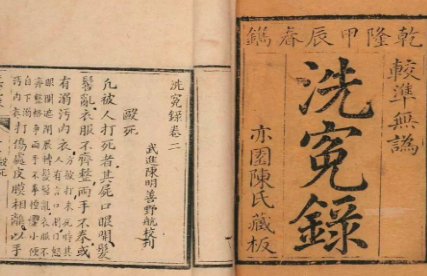 乾隆甲辰春鐫
較準無譌
洗冤錄
亦園陳氏藏板
洗冤錄卷二
武進陳明善野航校刊
毆死
凡被人打死者其屍口眼開髮
髻亂衣服不齊整兩手不拳或
有溺污內衣
打傷處皮膜相離以手